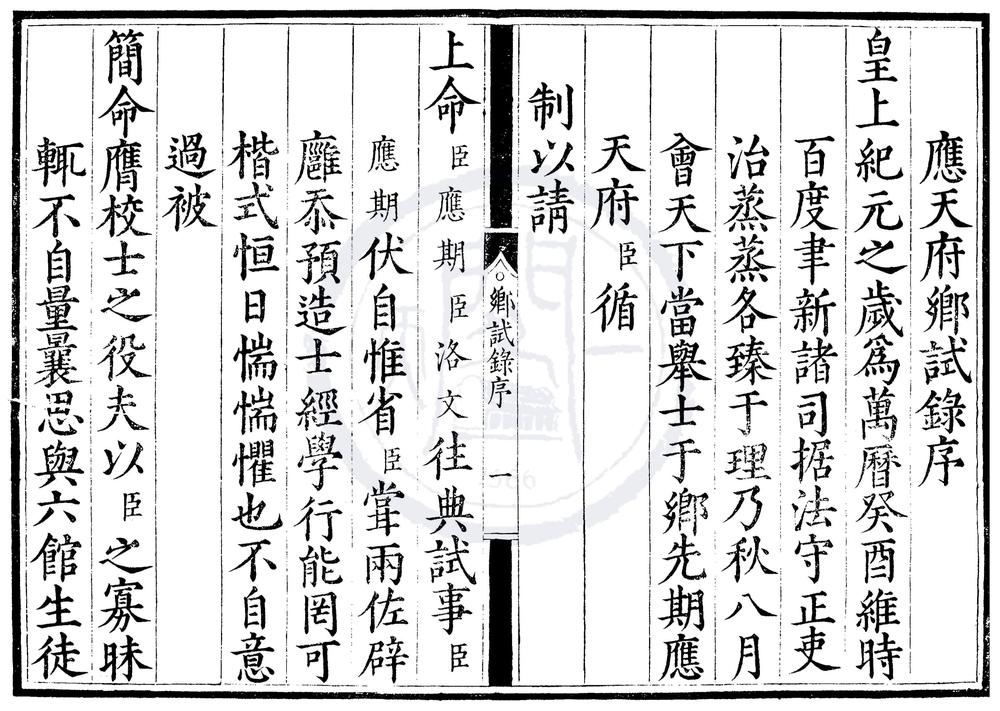 應天府鄉試錄序
皇上紀元之歲爲萬曆癸酉維時
百度聿新諸司据法守正吏
治蒸蒸各臻于理乃秋八月
會天下當舉士于鄉先期應
天府臣循
制以請
鄉試錄序 一
上命臣應期臣洛文往典試事臣
應期伏自惟省臣嘗兩佐辟
廱忝預造士經學行能罔可
楷式恒日惴惴懼也不自意
過被
簡命膺校士之役夫以臣之寡昧
輒不自量曩思與六館生徒